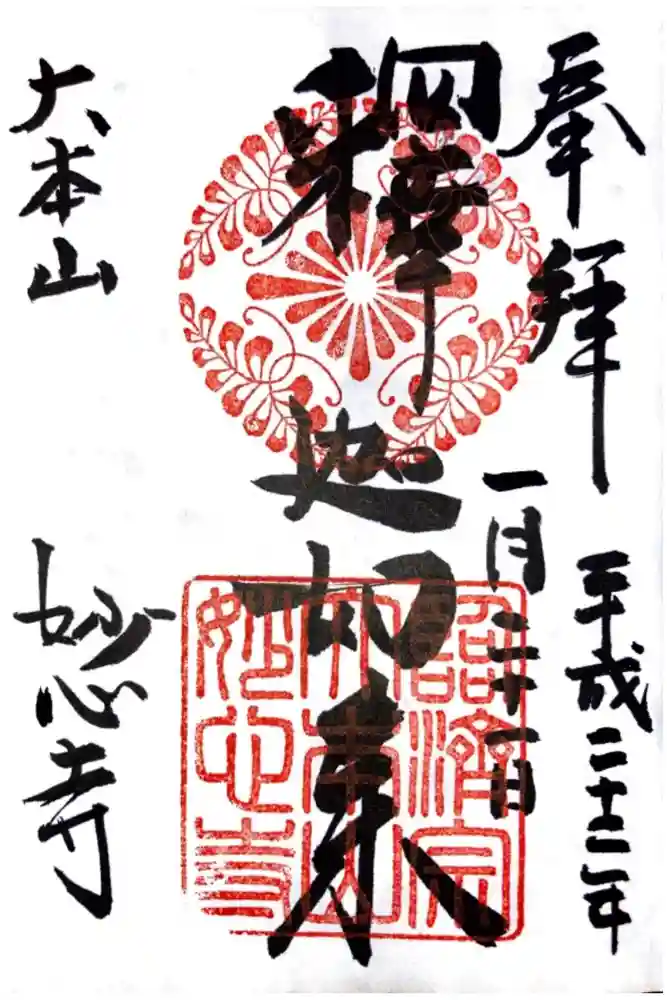 奉拝
平成二十二年
一月二十一日
釋迦如来
臨濟宗
大本山
妙心寺
大本山
妙心寺